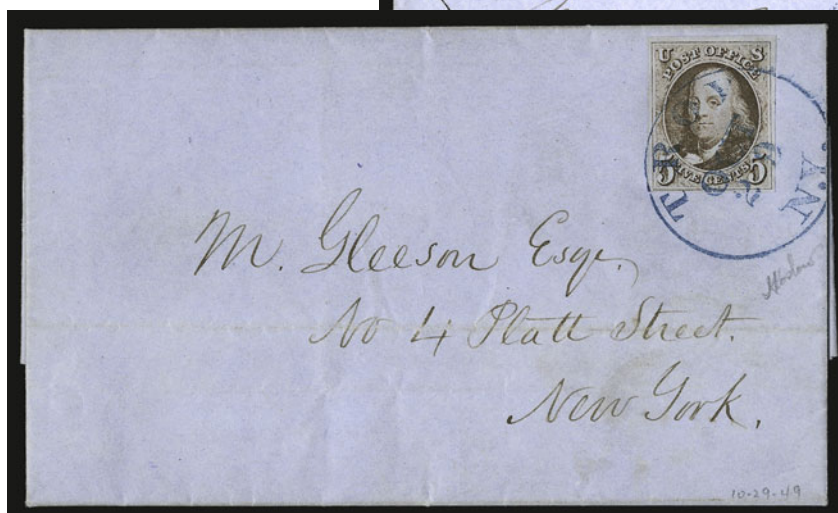 U S
POST OFFICE
FIVE CENTS
5 5
TROY
N.Y.
M. Gleeson Esqr.
No 4 Platt Street.
New York.
10-29-49